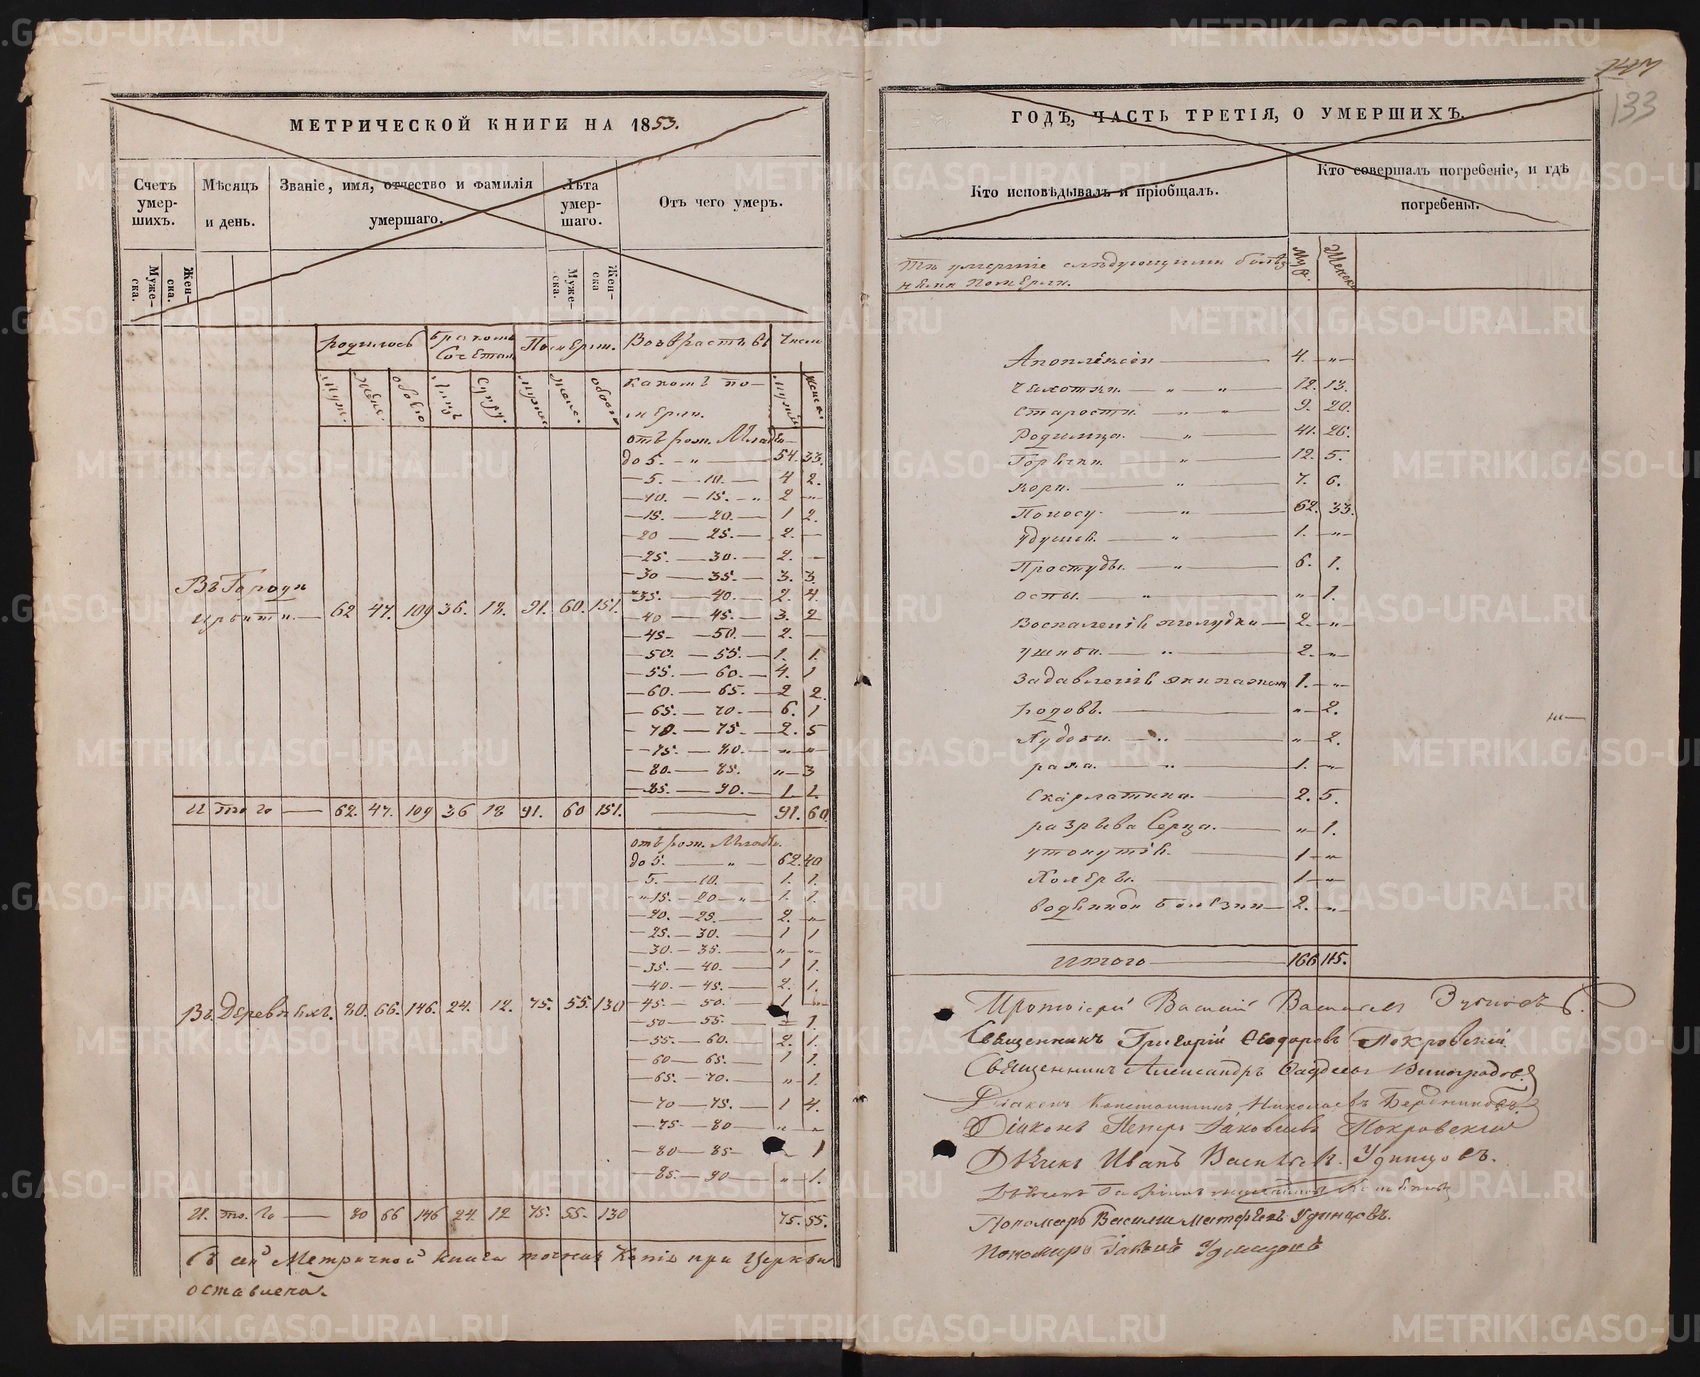 МЕТРИЧЕСКОЙ КНИГИ НА 1853.
Счетъ умер-шихъ.
Муже-ска.
Жен-ска.
Мѣсяцъ и день.
Званіе, имя, отчество и фамилія умершаго.
Лѣта умер-шаго.
Муже-ска.
Жен-ска
Отъ чего умеръ.
родилось
Померш.
Возрасты
Число
отъ рож. Млад.
до 5. — „ — 54. 33.
— 5. — 10. — 4 2.
— 10. — 15. — „ 2 — „
— 15. — 20. — 1 2.
— 20 — 25. — 2. —
— 25. — 30. — 2. —
— 30 — 35. — 3. 3.
— 35. — 40. — 2. 4.
— 40 — 45. — 3. 2
— 45 — 50. — 2. —
— 50. — 55. — 1. 1.
— 55. — 60. — 4. 1
— 60. — 65. — 2 2.
— 65. — 70. — 6. 1
— 70. — 75. — 2. 5
— 75. — 80. — „ — „
— 80. — 85. „ — 3
— 85. — 90. — 1. 1.
Въ Городѣ
Ирбити. — 62 47. 109 36. 18. 91. 60. 151.
И того — 62. 47. 109 36 18 91. 60 151. — 91. 60
отъ рож. Млад.
до 5. — „ — 62. 40
— 5. — 10. — 1. 1.
— „ 15. — 20 — „ 1. 1.
— 20. — 25. — 2. — „
— 25. — 30. — 1 1
— 30 — 35. — „ — „
— 35. — 40. — 1 1.
— 40. — 45. — 2. 1.
Въ Деревняхъ. 80. 66. 146. 24. 12. 75. 55. 130 — 45. — 50. — 1 — „
— 50 — 55. — 1.
— 55. — 60. — 2. 1.
— 60 — 65. — 1 1.
— 65. — 70. — „ 1.
— 70 — 75. — 1 4.
— 75. — 80 — „ „
— 80 — 85 — 1
— 85. — 90 — „ 1.
И того — 80 66 146 24. 12 75. 55. 130 75. 55.
Съ сей Метричной книги точная Копія при Церкви
оставлена.
ГОДЪ, ЧАСТЬ ТРЕТІЯ, О УМЕРШИХЪ.
133
Кто исповѣдывалъ и пріобщалъ.
Кто совершалъ погребеніе, и гдѣ погребены.
умершіе слѣдующими
померли.
Апоплексіи — 4. — „
Чахотки. — „ „ — 12. 13.
Старости. „ „ — 9. 20.
Родимца. — „ — 41. 26.
Горячки. — „ — 12. 5.
Кори. — „ — 7. 6.
Поносу. — „ — 62. 33.
Удушья. — „ — 1. — „
Простуды. — „ — 6. 1.
Оспы. — „ — „ — 1.
Воспаленіе желудка — 2. — „
Ушиба. — „ — 2. — „
Задавленіе экипажемъ 1. — „
Родовъ. — „ — 2.
Худобы. — „ — „ — 2.
рака. — „ — 1. — „
Скарлатина. — 2. 5.
разрыва Серца. — „ — 1.
утонутіе. — 1 — „
Холеры. — 1 — „
водянной болѣзни — 2. — „
Итого — 166 115.
Протоіерей Василій Васильевъ
Священникъ Григорій Ѳеодоровъ Покровскій
Священникъ Александръ Виноградовъ
Діаконъ Константинъ Николаевъ Бердниковъ.
Діаконъ Петръ Іаковлевъ Покровскій
Дьячекъ Иванъ Васильевъ. Удинцовъ.
Пономарь Василій Матфеевъ Удинцовъ.
Пономарь Удинцовъ
METRIKI.GASO-URAL.RU